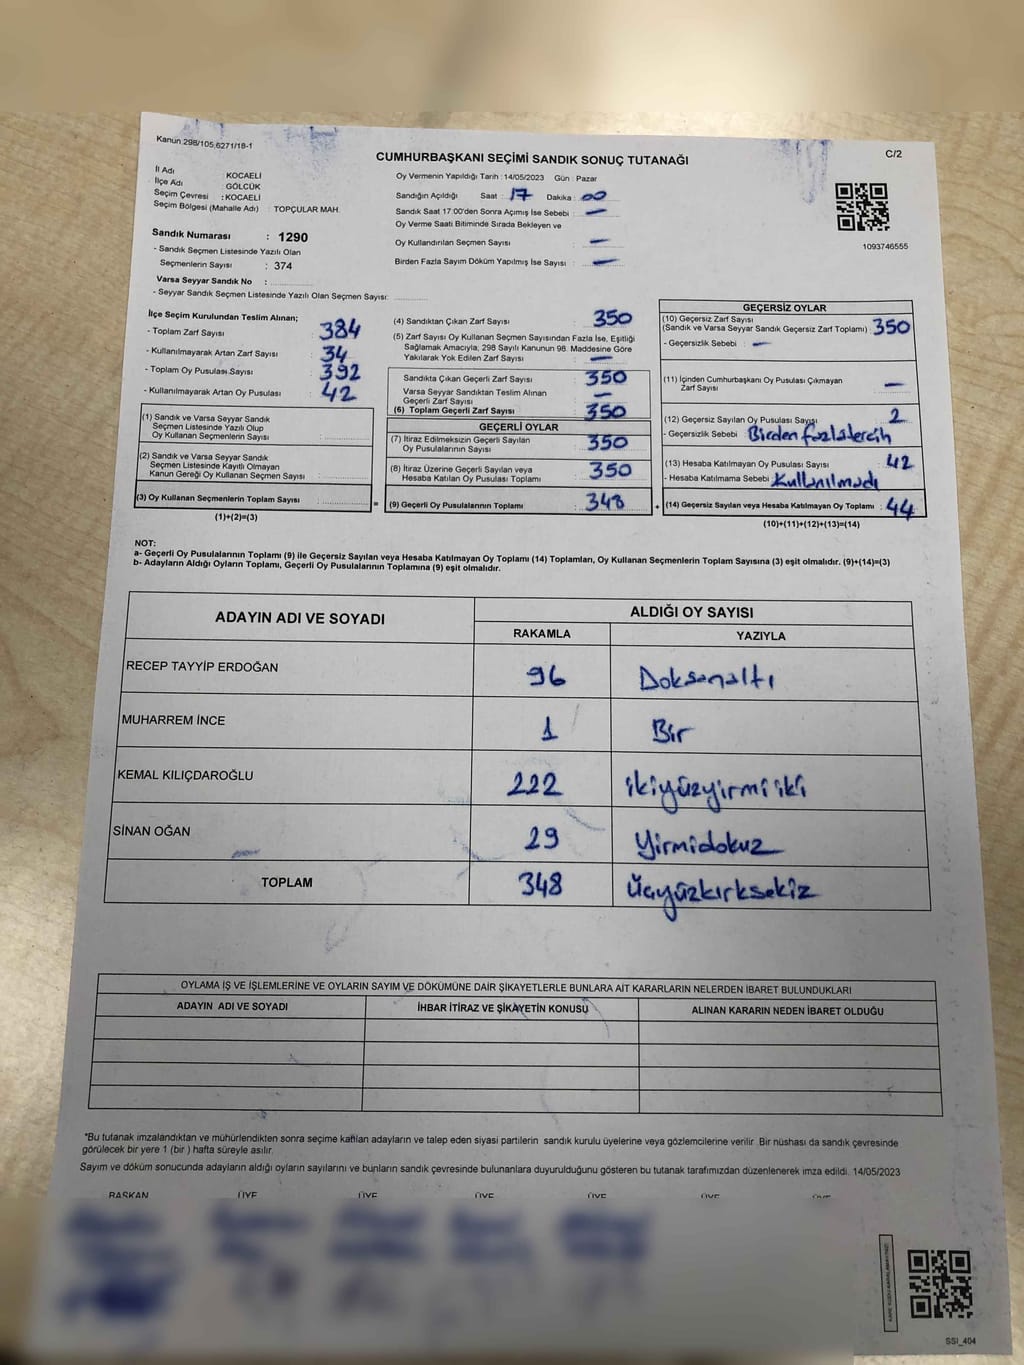 Kanun 298/105,6271/18-1
CUMHURBAŞKANI SEÇİMİ SANDIK SONUÇ TUTANAĞI
C/2
İl Adı KOCAELİ
İlçe Adı GÖLCÜK
Seçim Çevresi : KOCAELİ
Seçim Bölgesi (Mahalle Adı) : TOPÇULAR MAH.
Sandık Numarası : 1290
- Sandık Seçmen Listesinde Yazılı Olan
Seçmenlerin Sayısı : 374
Varsa Seyyar Sandık No :
- Seyyar Sandık Seçmen Listesinde Yazılı Olan Seçmen Sayısı:
Oy Vermenin Yapıldığı Tarih : 14/05/2023 Gün : Pazar
Sandığın Açıldığı Saat : 17 Dakika : 00
Sandık Saat 17:00'den Sonra Açımış İse Sebebi : —
Oy Verme Saati Bitiminde Sırada Bekleyen ve
Oy Kullandırılan Seçmen Sayısı : —
Birden Fazla Sayım Döküm Yapılmış İse Sayısı : —
1093746555
İlçe Seçim Kurulundan Teslim Alınan;
- Toplam Zarf Sayısı : 384
- Kullanılmayarak Artan Zarf Sayısı : 34
- Toplam Oy Pusulası Sayısı : 392
- Kullanılmayarak Artan Oy Pusulası : 42
(1) Sandık ve Varsa Seyyar Sandık
Seçmen Listesinde Yazılı Olup
Oy Kullanan Seçmenlerin Sayısı :
(2) Sandık ve Varsa Seyyar Sandık
Seçmen Listesinde Kayıtlı Olmayan
Kanun Gereği Oy Kullanan Seçmen Sayısı :
(3) Oy Kullanan Seçmenlerin Toplam Sayısı :
(1)+(2)=(3)
=
(4) Sandıktan Çıkan Zarf Sayısı : 350
(5) Zarf Sayısı Oy Kullanan Seçmen Sayısından Fazla İse, Eşitliği
Sağlamak Amacıyla, 298 Sayılı Kanunun 98. Maddesine Göre
Yakılarak Yok Edilen Zarf Sayısı : —
Sandıkta Çıkan Geçerli Zarf Sayısı : 350
Varsa Seyyar Sandıktan Teslim Alınan
Geçerli Zarf Sayısı : —
(6) Toplam Geçerli Zarf Sayısı : 350
GEÇERLİ OYLAR
(7) İtiraz Edilmeksizin Geçerli Sayılan
Oy Pusulalarının Sayısı : 350
(8) İtiraz Üzerine Geçerli Sayılan veya
Hesaba Katılan Oy Pusulası Toplamı : 350
(9) Geçerli Oy Pusulalarının Toplamı : 348
+
GEÇERSİZ OYLAR
(10) Geçersiz Zarf Sayısı
(Sandık ve Varsa Seyyar Sandık Geçersiz Zarf Toplamı) : 350
- Geçersizlik Sebebi : —
(11) İçinden Cumhurbaşkanı Oy Pusulası Çıkmayan
Zarf Sayısı : —
(12) Geçersiz Sayılan Oy Pusulası Sayısı : 2
- Geçersizlik Sebebi : Birden fazla tercih
(13) Hesaba Katılmayan Oy Pusulası Sayısı : 42
- Hesaba Katılmama Sebebi : Kullanılmadı
(14) Geçersiz Sayılan veya Hesaba Katılmayan Oy Toplamı : 44
(10)+(11)+(12)+(13)=(14)
NOT:
a- Geçerli Oy Pusulalarının Toplamı (9) ile Geçersiz Sayılan veya Hesaba Katılmayan Oy Toplamı (14) Toplamları, Oy Kullanan Seçmenlerin Toplam Sayısına (3) eşit olmalıdır. (9)+(14)=(3)
b- Adayların Aldığı Oyların Toplamı, Geçerli Oy Pusulalarının Toplamına (9) eşit olmalıdır.
ADAYIN ADI VE SOYADI
ALDIĞI OY SAYISI
RAKAMLA YAZIYLA
RECEP TAYYİP ERDOĞAN 96 Doksanaltı
MUHARREM İNCE 1 Bir
KEMAL KILIÇDAROĞLU 222 ikiyüzyirmiiki
SİNAN OĞAN 29 Yirmidokuz
TOPLAM 348 Üçyüzkırksekiz
OYLAMA İŞ VE İŞLEMLERİNE VE OYLARIN SAYIM VE DÖKÜMÜNE DAİR ŞİKAYETLERLE BUNLARA AİT KARARLARIN NELERDEN İBARET BULUNDUKLARI
ADAYIN ADI VE SOYADI İHBAR İTİRAZ VE ŞİKAYETİN KONUSU ALINAN KARARIN NEDEN İBARET OLDUĞU
*Bu tutanak imzalandıktan ve mühürlendikten sonra seçime katılan adayların ve talep eden siyasi partilerin sandık kurulu üyelerine veya gözlemcilerine verilir. Bir nüshası da sandık çevresinde
görülecek bir yere 1 (bir ) hafta süreyle asılır.
Sayım ve döküm sonucunda adayların aldığı oyların sayılarını ve bunların sandık çevresinde bulunanlara duyurulduğunu gösteren bu tutanak tarafımızdan düzenlenerek imza edildi. 14/05/2023
BAŞKAN ÜYE ÜYE ÜYE ÜYE ÜYE ÜYE
SSI_404